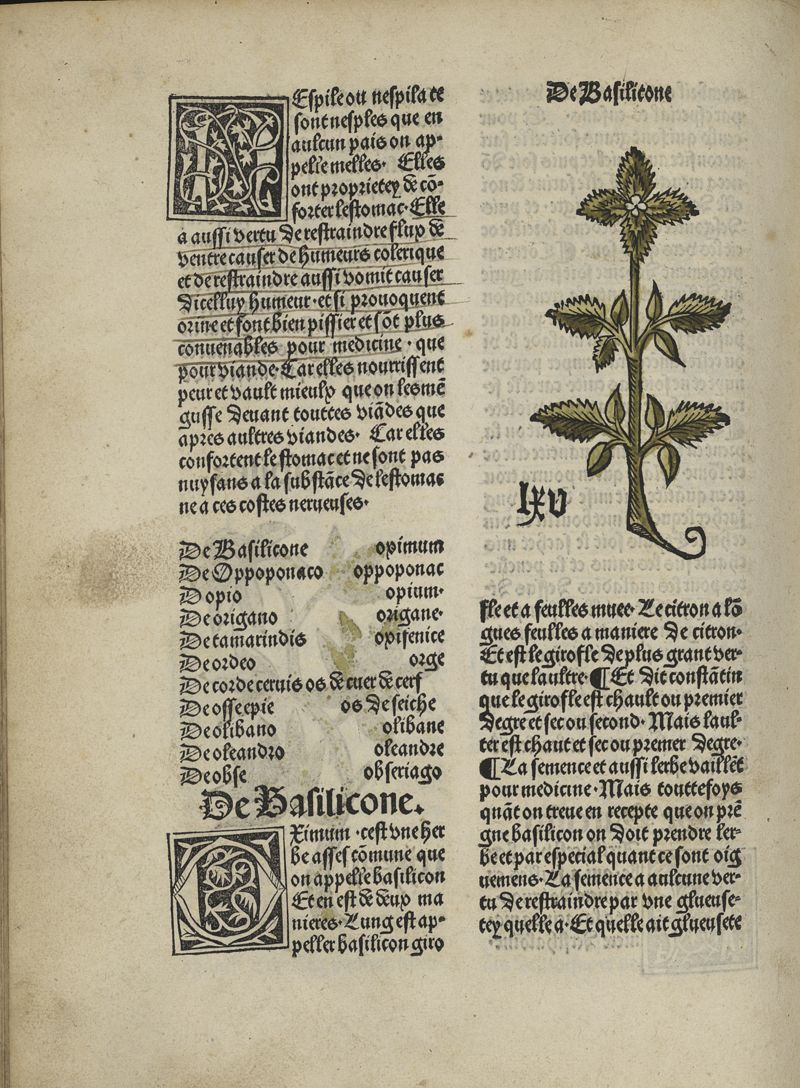 NEspile ou nespila ce
sont nesples que en
aulcun pais on ap-
pelle melles. Elles
ont proprietez de cō-
forter lestomac. Elle
a aussi vertu de restraindre flux de
ventre causer de humeurs colerique
et de restraindre aussi vomit causer
dicelluy humeur. et si prouoquent
orine et font bien pissier et sōt plus
conuenables pour medicine. que
pour viande. Car elles nourrissent
peur et vault mieulx que on les mē
gusse deuant touttes viādes que
apres aultres viandes. Car elles
confortent le stomac et ne sont pas
nuysans a la substāce de lestomac
ne a ces costes nerueuses.
De Basilicone opimum
De Oppoponaco oppoponac
D opio opium.
De origano origane.
De tamarindis opifenice
De ordeo orge
De corde ceruis os de cuer de cerf
De osse cepie os de seiche
De olibano olibane
De oleandro oleandre
De obse obseriago
De Basilicone.
OXimum. cest vne her
be asses cōmune que
on appelle basilicon
Et en est de deux ma
nieres. Lung est ap-
peller basilicon giro
De Basilicone
lxv
fle et a feulles muee. Le citron a lō
gues feulles a maniere de citron.
Et est le girofle de plus grant ver-
tu que laultre. ¶ Et dit constātin
que le girofle est chault ou premier
degre et sec ou second. Mais laul-
ter est chaut et sec ou premer degre.
¶ La semence et aussi lerbe vaillēt
pour medicine. Mais touttefoys
quāt on treue en recepte que on prē
gne basilicon on doit prendre ler-
be et par especial quant ce sont oig
uemens. La semence a aulcune ver-
tu de restraindre par vne glueuse-
tez quelle a. Et quelle ait glueusete